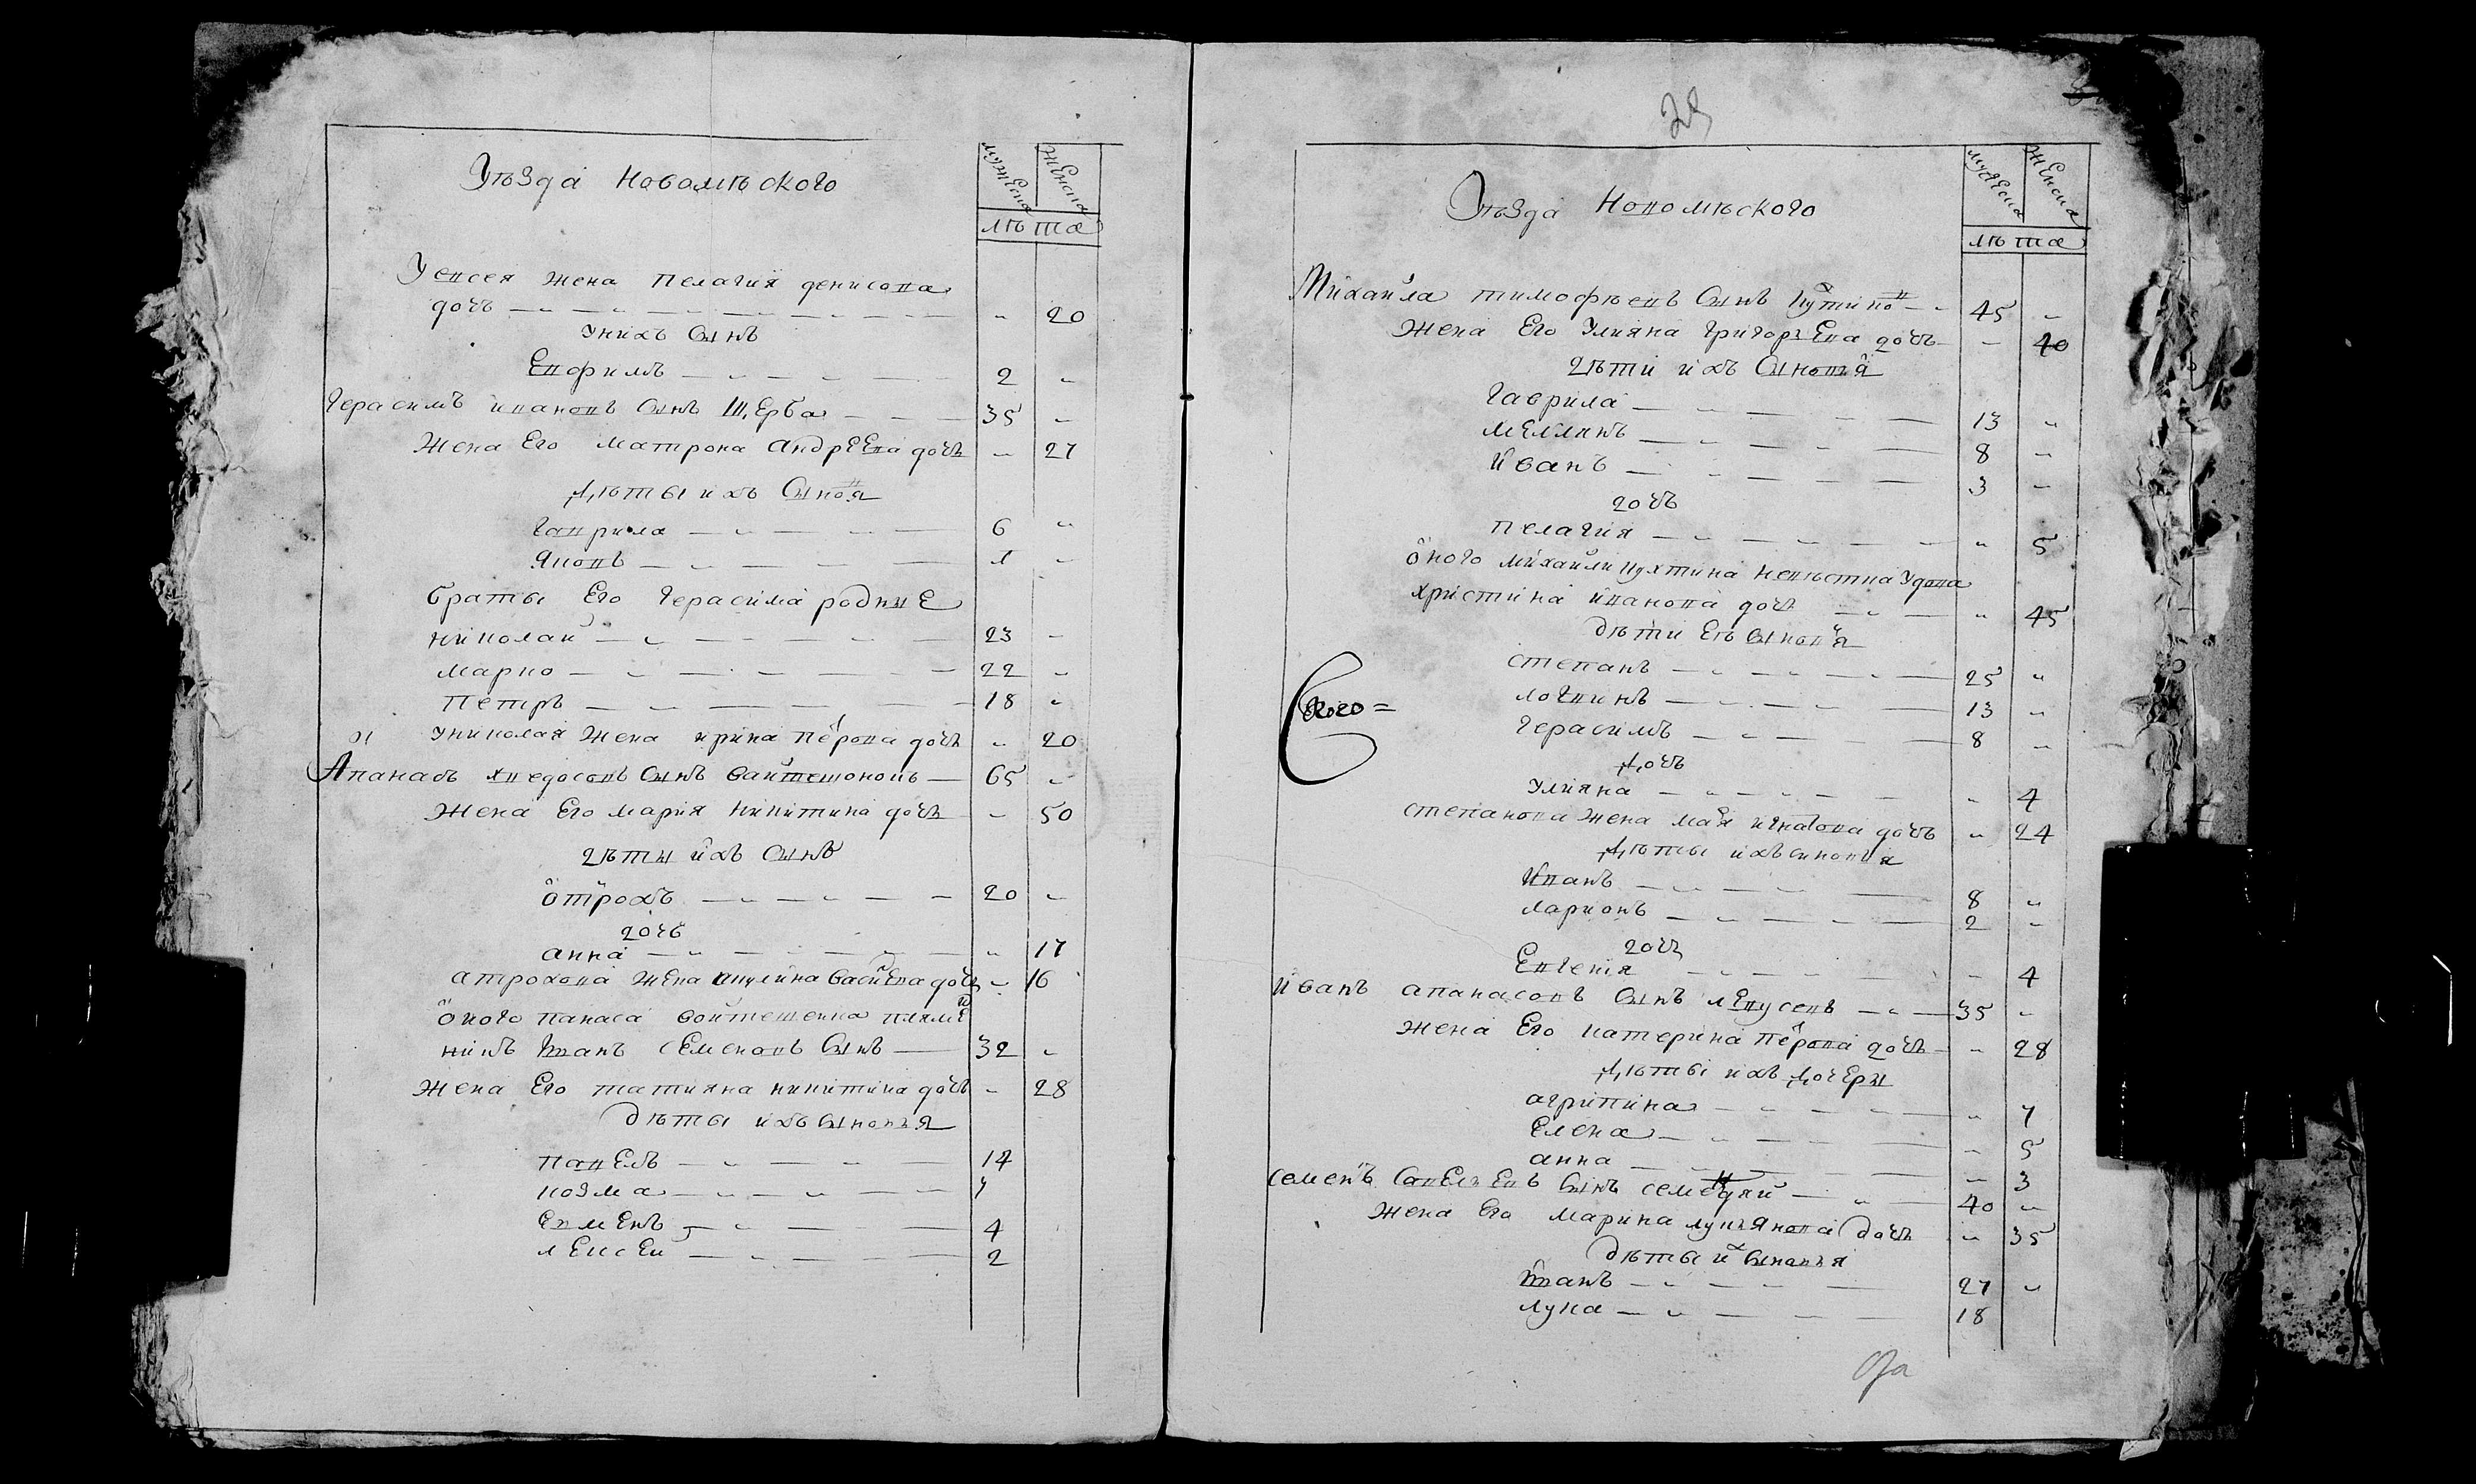 Уѣзда Новомѣского
мужеска
женска
лѣта
У евсея жена пелагия денисова
дочь " 20
У нихъ сынъ
Евфимъ 2 "
Герасимъ ивановъ сынъ Щерба 35 "
Жена Его матрона андрЕЕва дочь " 27
Дѣты ихъ сыновя
гаврила 6 "
Яковъ 1 "
браты Его герасима родныЕ
николай 23 "
марко 22 "
петръ 18 "
У николая жена ирина перова дочь " 20
Апанасъ хведосовъ сынъ вайтешонокъ 65 "
Жена Его мария никитина дочь " 50
дѣты ихъ сынъ
отрохъ 20 "
дочь
анна " 17
атрохова жена акулина васиЕва дочь " 16
оного панаса войтешенка племЕ
никъ иванъ сЕменовъ сынъ 32 "
Жена Его татияна никитина дочь " 28
дѣты ихъ сыновья
павЕлъ 14
козма 7
ЕхмЕнъ 4
лЕксЕй 2
28
Уѣзда Новомѣского
мужеска
женска
лѣта
Михайла тимофѣевъ сынъ кухтинов 45 "
Жена Его Улияна григорьЕва дочь " 40
дѣти ихъ сыновья
гаврила 13 "
мЕлянъ 8 "
иванъ 3 "
дочь
пелагия " 5
оного михайли кухтина невѣстка Удова
христина иванова дочь " 45
дѣти Еѣ сыновя
степанъ 25 "
логвинъ 13 "
ского=
герасимъ 8 "
дочь
Улияна " 4
степанова жена мая игнатова дочь " 24
дѣты ихъ синовья
иванъ 8 "
ларионъ 2 "
дочь
Евгения " 4
иванъ апанасовъ сынъ лЕвусевъ 35 "
жена Его катерина перова дочь " 28
дѣты ихъ дочЕры
агрипина " 7
Елена " 5
анна " 3
семенъ савЕльЕвъ сынъ 40 "
Жена Его марина лукъянова дочь " 35
дѣты их сыновья
иванъ 27 "
лука 18